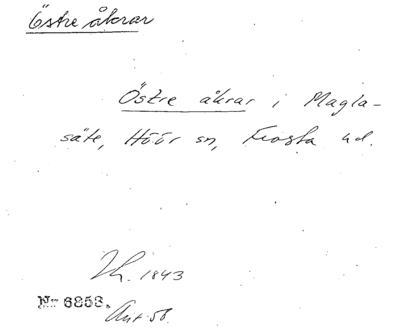 Östre åkrar
Östre åkrar i Magla-
säte, Höör sn, Frosta hd.
1843
Nr 6858.
Avt. 58.